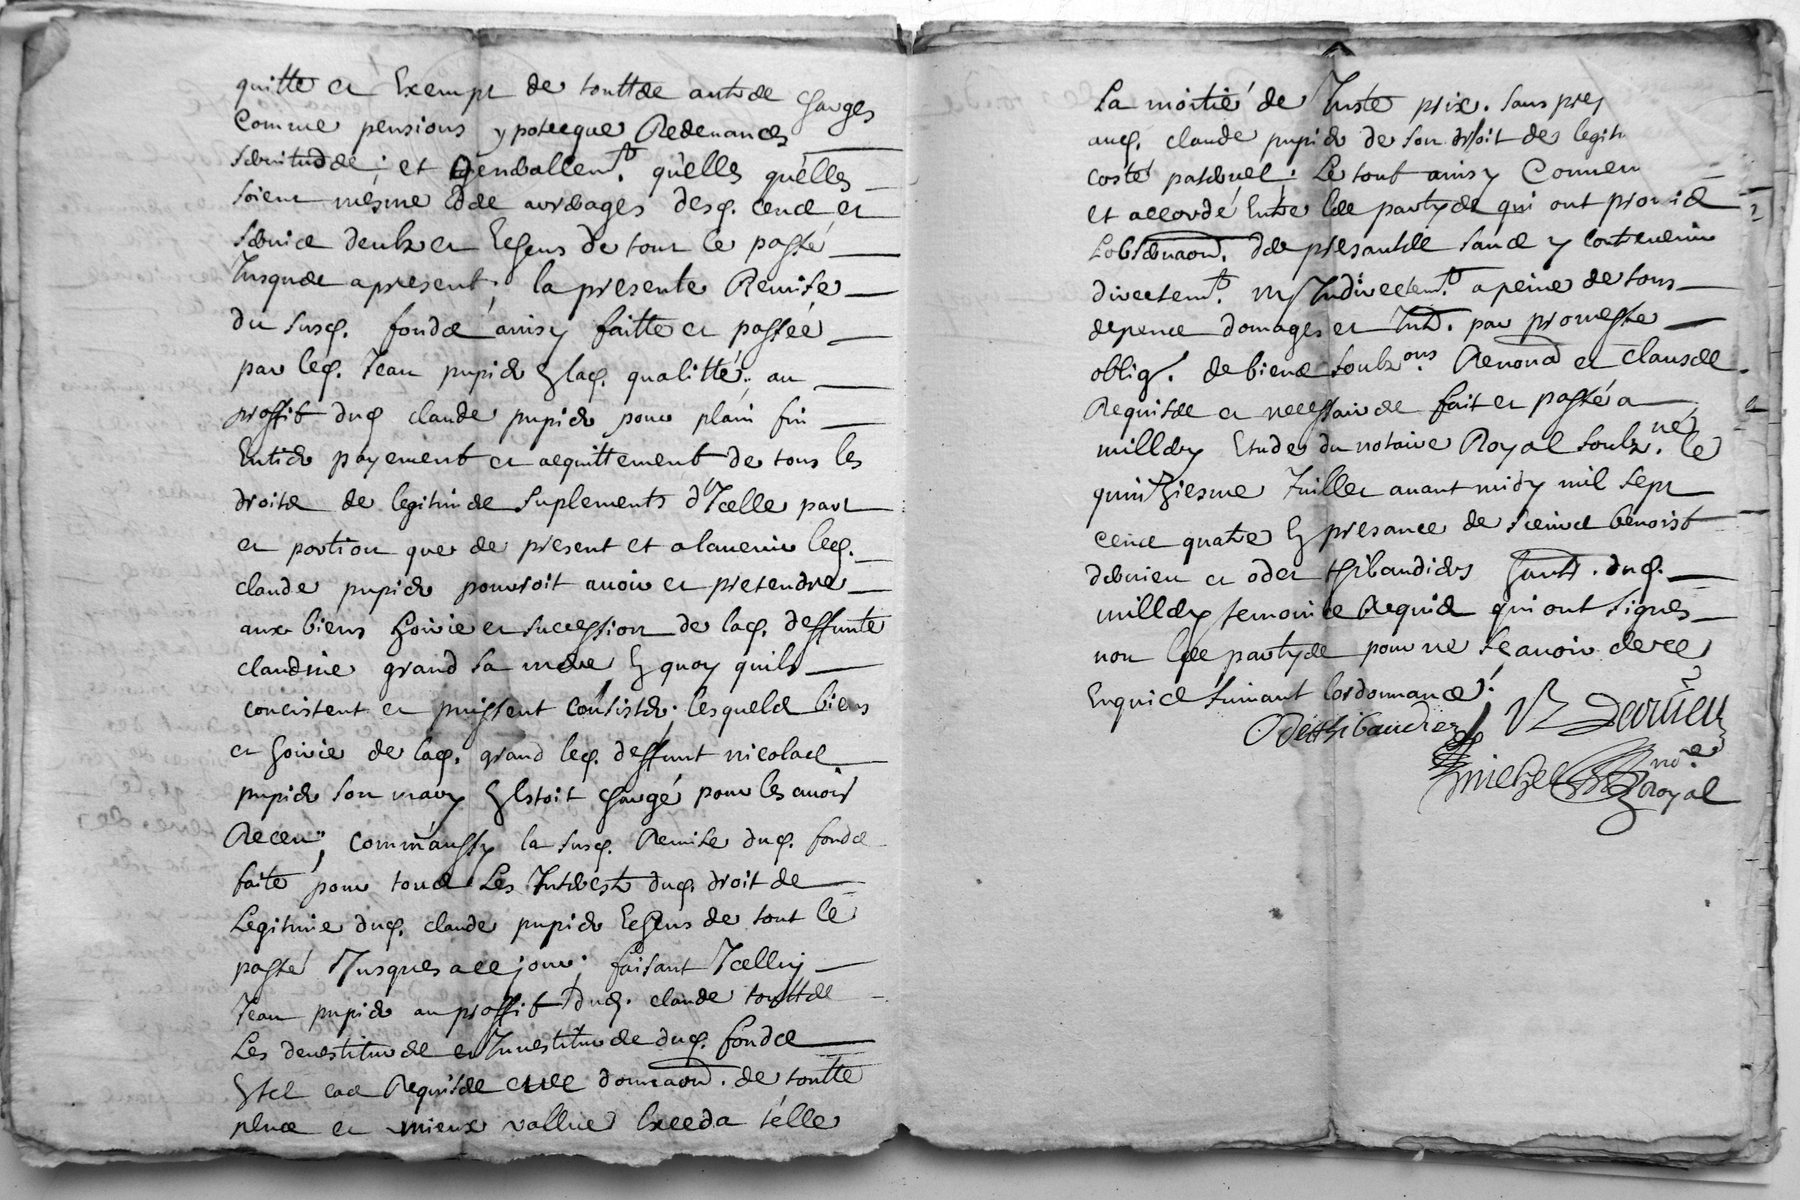 quitte et Exempt de touttes autres charges
Comme pensions ypotecque Redevances
servitudes ; et Generallemt. quelles quelles
soient mesme des arrerages desq. cens et
servis deubz et Escheus de tout le passé
Jusques apresent ; la presente Remise
du susq. fonds ainsy faitte et passée
par leq. Jean pupier En laq. qualitté ; au
proffit duq claude pupier pour plain fin
Entier payement et acquittement de tous les
droits de legitimes suplements d'Icelle part
et portion que de present et alavenir leq.
claude pupier pourroit avoir et pretendre
aux biens hoirie et succession de laq. deffunte
claudine grand sa mere En quoy quils
concistent et puissent consister ; lesquels biens
et hoirie de laq. grand leq. deffunt nicolas
pupier son mary Estoit chargé pour les avoir
Receu ; comm'aussy la susq. Remise duq. fonds
faite pour tous Les Interests duq. droit de
Legitime duq. claude pupier Escheus de tout le
passé Jusques a ce jour ; faisant Icelluy
Jean pupier au proffit duq. claude touttes
Les devestitures et Investitures duq. fonds
En tel cas Requises avec donnaon. de toutte
plus et mieux vallue Exceda telle
La moitié de Juste prix . sans prej
auq. claude pupier de son droit des legitim
costé paternel ; Le tout ainsy Conven
et accordé Entre les partyes qui ont promis
Lobservaon. des presantes sans y contrevenir
directemt. ny Indirectemt. a peine de tous
depens domages et Intz. par promesse
oblig. de biens soubz.ons Renons et clauses
Requises et necessaires fait et passé a
millery Etude du notaire Royal soubz.né le
quinziesme Juillet avant midy mil sept
cens quatre En presance de sieurs benoist
dervieu et odet thibaudier habts. duq.
millery temoins Requis qui ont signés
non les partyes pour ne scavoir de ce
Enquis suivant lordonnance ;
Odet thibaudier B Dervieu
no.re
Royal